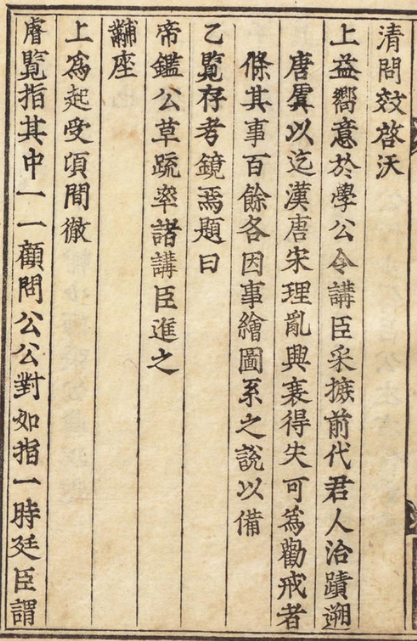 清問效啓沃
上益嚮意於學公令講臣采摭前代君人治蹟遡
唐虞以迄漢唐宋理亂興衰得失可為勸戒者
條其事百餘各因事繪圖系之說以備
乙覽存考鏡焉題曰
帝鑑公草疏率諸講臣進之
黼座
上為起受頃間徹
睿覽指其中一一顧問公公對如指一時廷臣謂